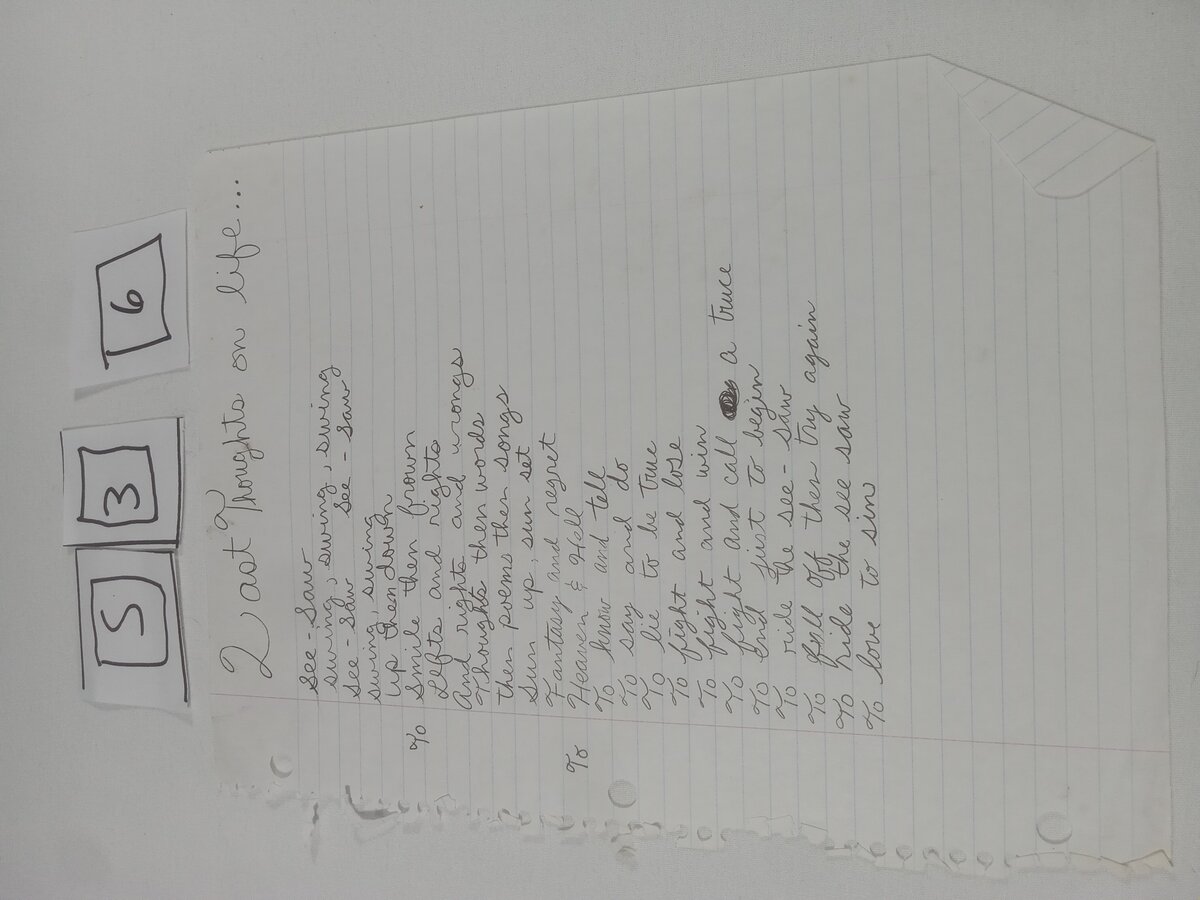 5 3 6
Last Thoughts on life...
See-Saw
swing, swing, swing, swing
see-saw see-saw
swing, swing
up then down
To smile then frown
Lefts and rights
And rights and wrongs
Thoughts then words
then poems then songs
Sun up, sun set
Fantasy and regret
To Heaven & Hell
To know and tell
To say and do
To lie to be true
To fight and lose
To fight and win
To fight and call a truce
To end just to begin
To ride the see-saw
To fall off then try again
To ride the see saw
To love to sin